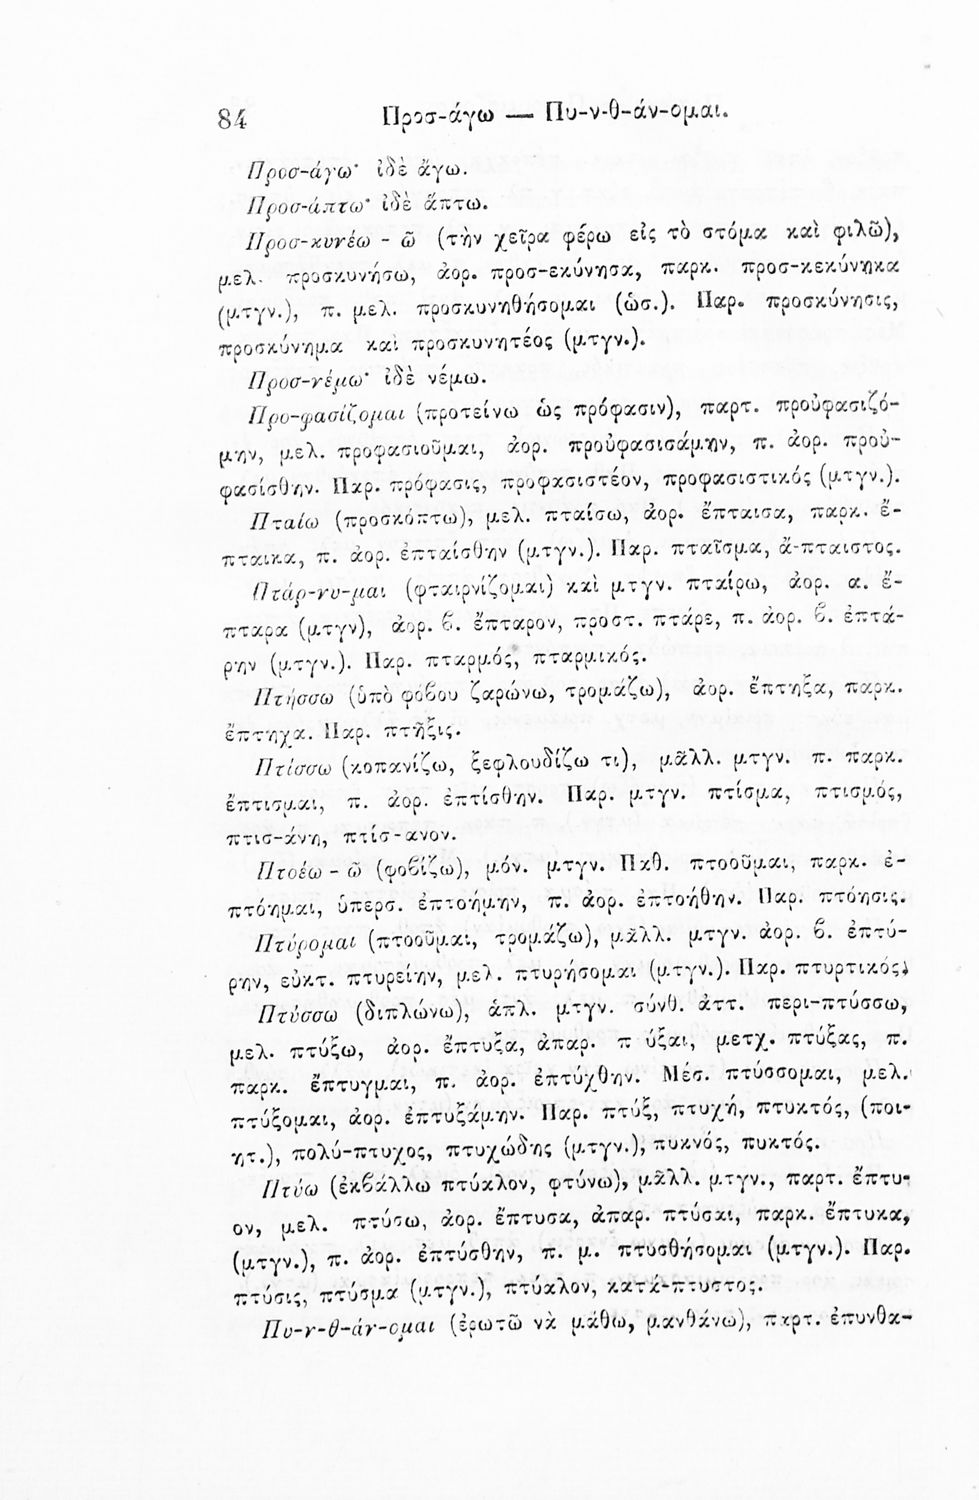 84 Προσ-άγω — Πυ-ν-θ-άν-ομαι.
Προσ-άγω· ἰδὲ ἄγω.
Προσ-άπτω· ἰδὲ ἅπτω.
Προσ-κυνέω - ῶ (τὴν χεῖρα φέρω εἰς τὸ στόμα καὶ φιλῶ),
μελ. προσκυνήσω, ἀορ. προσ-εκύνησα, παρκ. προσ-κεκύνηκα
(μτγν.), π. μελ. προσκυνηθήσομαι (ὡσ.). Παρ. προσκύνησις,
προσκύνημα καὶ προσκυνητέος (μτγν.).
Προσ-νέμω· ἰδὲ νέμω.
Προ-φασίζομαι (προτείνω ὡς πρόφασιν), παρτ. προὐφασιζό-
μην, μελ. προφασιοῦμαι, ἀορ. προὐφασισάμην, π. ἀορ. προὐ-
φασίσθην. Παρ. πρόφασις, προφασιστέον, προφασιστικός (μτγν.).
Πταίω (προσκόπτω), μελ. πταίσω, ἀορ. ἔπταισα, παρκ. ἔ-
πταικα, π. ἀορ. ἐπταίσθην (μτγν.). Παρ. πταῖσμα, ἄ-πταιστος.
Πτάρ-νυ-μαι (φταιρνίζομαι) καὶ μτγν. πταίρω, ἀορ. α. ἔ-
πταρα (μτγν), ἀορ. ϐ. ἔπταρον, προστ. πτάρε, π. ἀορ. ϐ. ἐπτά-
ρην (μτγν.). Παρ. πταρμός, πταρμικός.
Πτήσσω (ὑπὸ φόϐου ζαρώνω, τρομάζω), ἀορ. ἔπτηξα, παρκ.
ἔπτηχα. Παρ. πτῆξις.
Πτίσσω (κοπανίζω, ξεφλουδίζω τι), μᾶλλ. μτγν. π. παρκ.
ἔπτισμαι, π. ἀορ. ἐπτίσθην. Παρ. μτγν. πτίσμα, πτισμός,
πτισ-άνη, πτίσ-ανον.
Πτοέω - ῶ (φοϐίζω), μόν. μτγν. Παθ. πτοοῦμαι, παρκ. ἐ-
πτόημαι, ὑπερσ. ἐπτοήμην, π. ἀορ. ἐπτοήθην. Παρ. πτόησις.
Πτύρομαι (πτοοῦμαι, τρομάζω), μᾶλλ. μτγν. ἀορ. ϐ. ἐπτύ-
ρην, εὐκτ. πτυρείην, μελ. πτυρήσομαι (μτγν.). Παρ. πτυρτικός.
Πτύσσω (διπλώνω), ἁπλ. μτγν. σύνθ. ἀττ. περι-πτύσσω,
μελ. πτύξω, ἀορ. ἔπτυξα, ἀπαρ. π ύξαι, μετχ. πτύξας, π.
παρκ. ἔπτυγμαι, π. ἀορ. ἐπτύχθην. Μέσ. πτύσσομαι, μελ.
πτύξομαι, ἀορ. ἐπτυξάμην. Παρ. πτύξ, πτυχή, πτυκτός, (ποι-
ητ.), πολύ-πτυχος, πτυχώδης (μτγν.), πυκνός, πυκτός.
Πτύω (ἐκϐάλλω πτύαλον, φτύνω), μᾶλλ. μτγν., παρτ. ἔπτυ-
ον, μελ. πτύσω, ἀορ. ἔπτυσα, ἀπαρ. πτύσαι, παρκ. ἔπτυκα,
(μτγν.), π. ἀορ. ἐπτύσθην, π. μ. πτυσθήσομαι (μτγν.). Παρ.
πτύσις, πτύσμα (μτγν.), πτύαλον, κατά-πτυστος.
Πυ-ν-θ-άν-ομαι (ἐρωτῶ νὰ μάθω, μανθάνω), παρτ. ἐπυνθα-